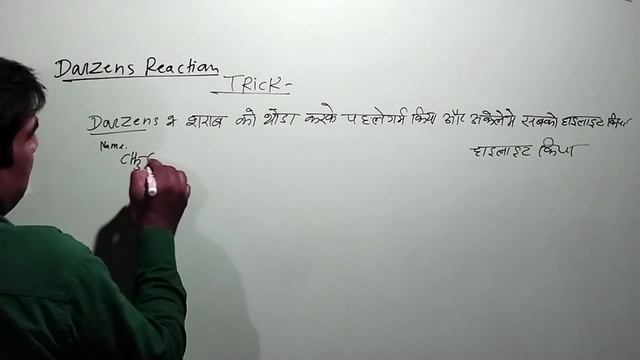 Darzens Reaction
TRICK-
Darzens ने शराब को थोडा करके पहले गर्म किया और अकेले मे सबको हाइलाइट किया
हाइलाइट किया
Name.
CH3 C